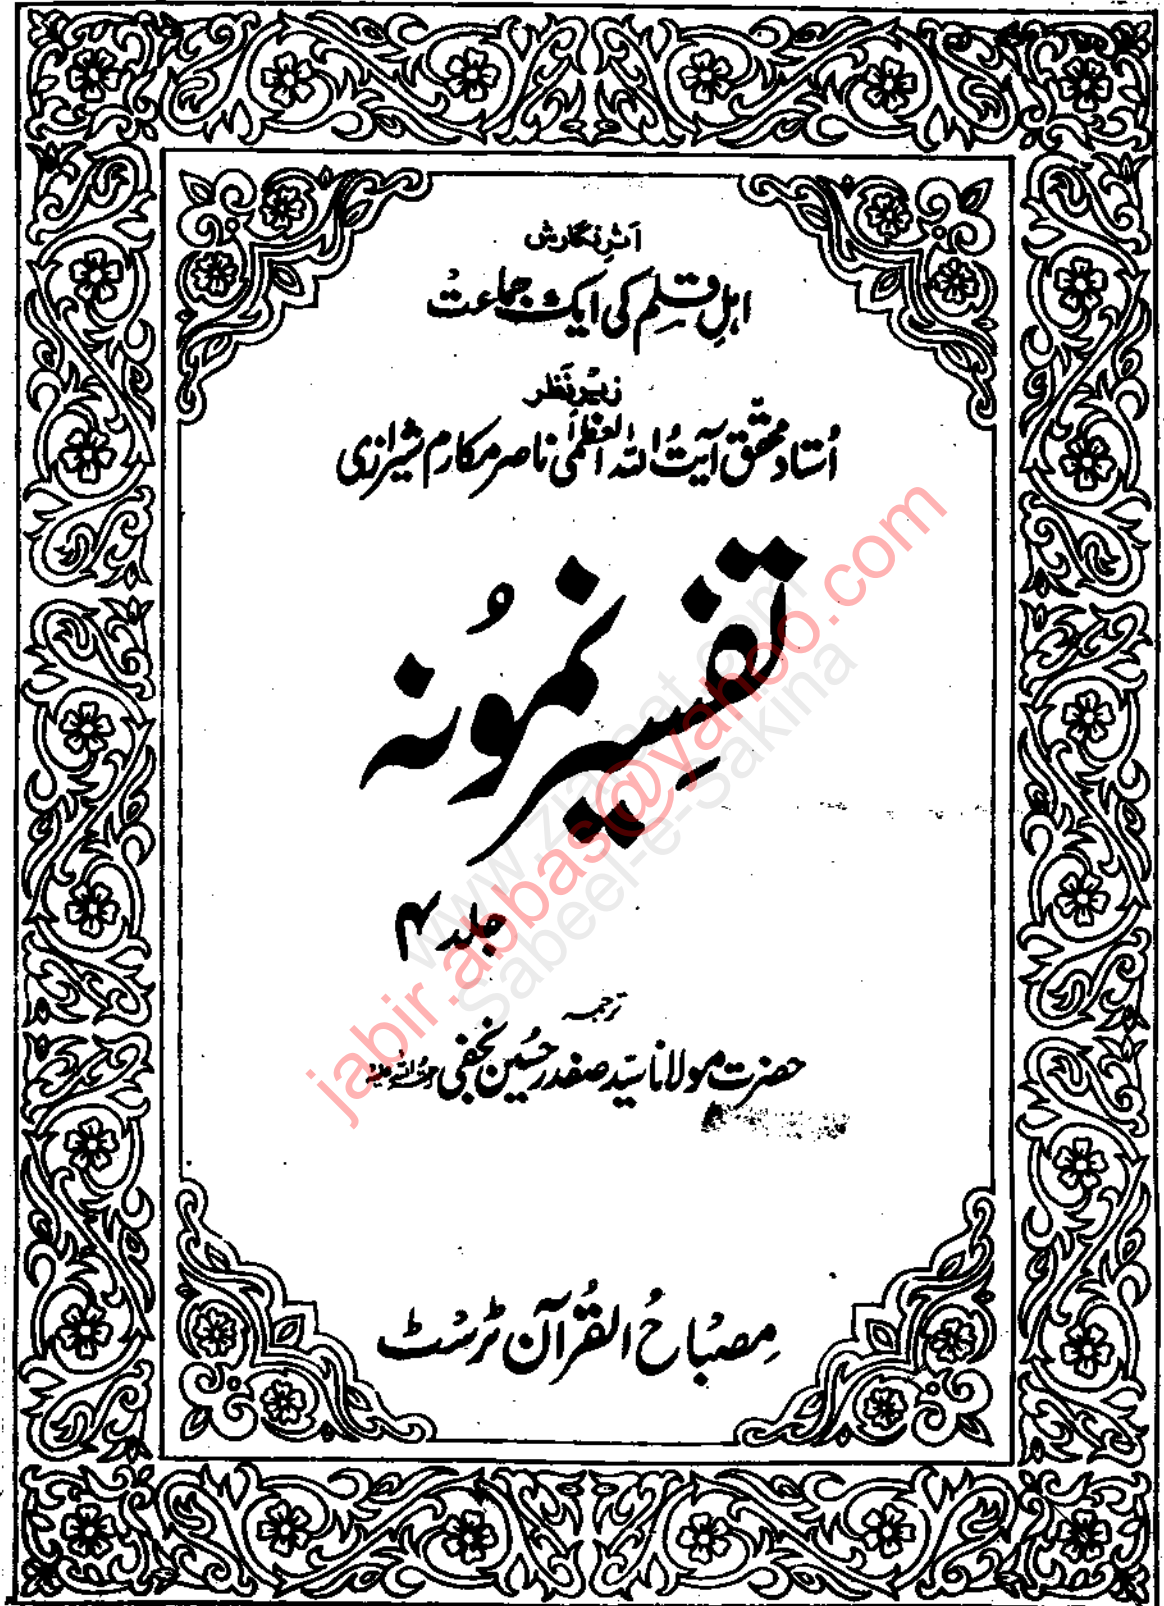 اثرِ نگارش
اہلِ قلم کی ایک جماعت
زیرِ نظر
اُستادِ محقق آیتُ اللہ العظمیٰ ناصر مکارم شیرازی
تفسیرِ نمونہ
جلد ۴
ترجمہ
حضرت مولانا سیّد صفدر حسین نجفی رحمۃ اللہ علیہ
مِصْبَاحُ القُرآن ٹرسٹ
www.ziaraat.com
jabir.abbas@yahoo.com
Sabeel-e-Sakina